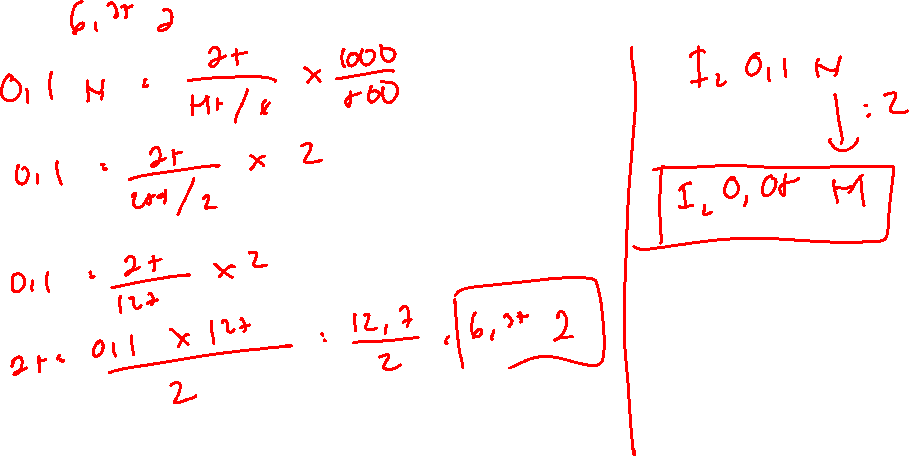 6,35 g
0,1 N = gr / Mr/e × 1000 / 500
0,1 = gr / 254/2 × 2
0,1 = gr / 127 × 2
gr = 0,1 × 127 / 2 = 12,7 / 2 = 6,35 g
I₂ 0,1 N
: 2
I₂ 0,05 M